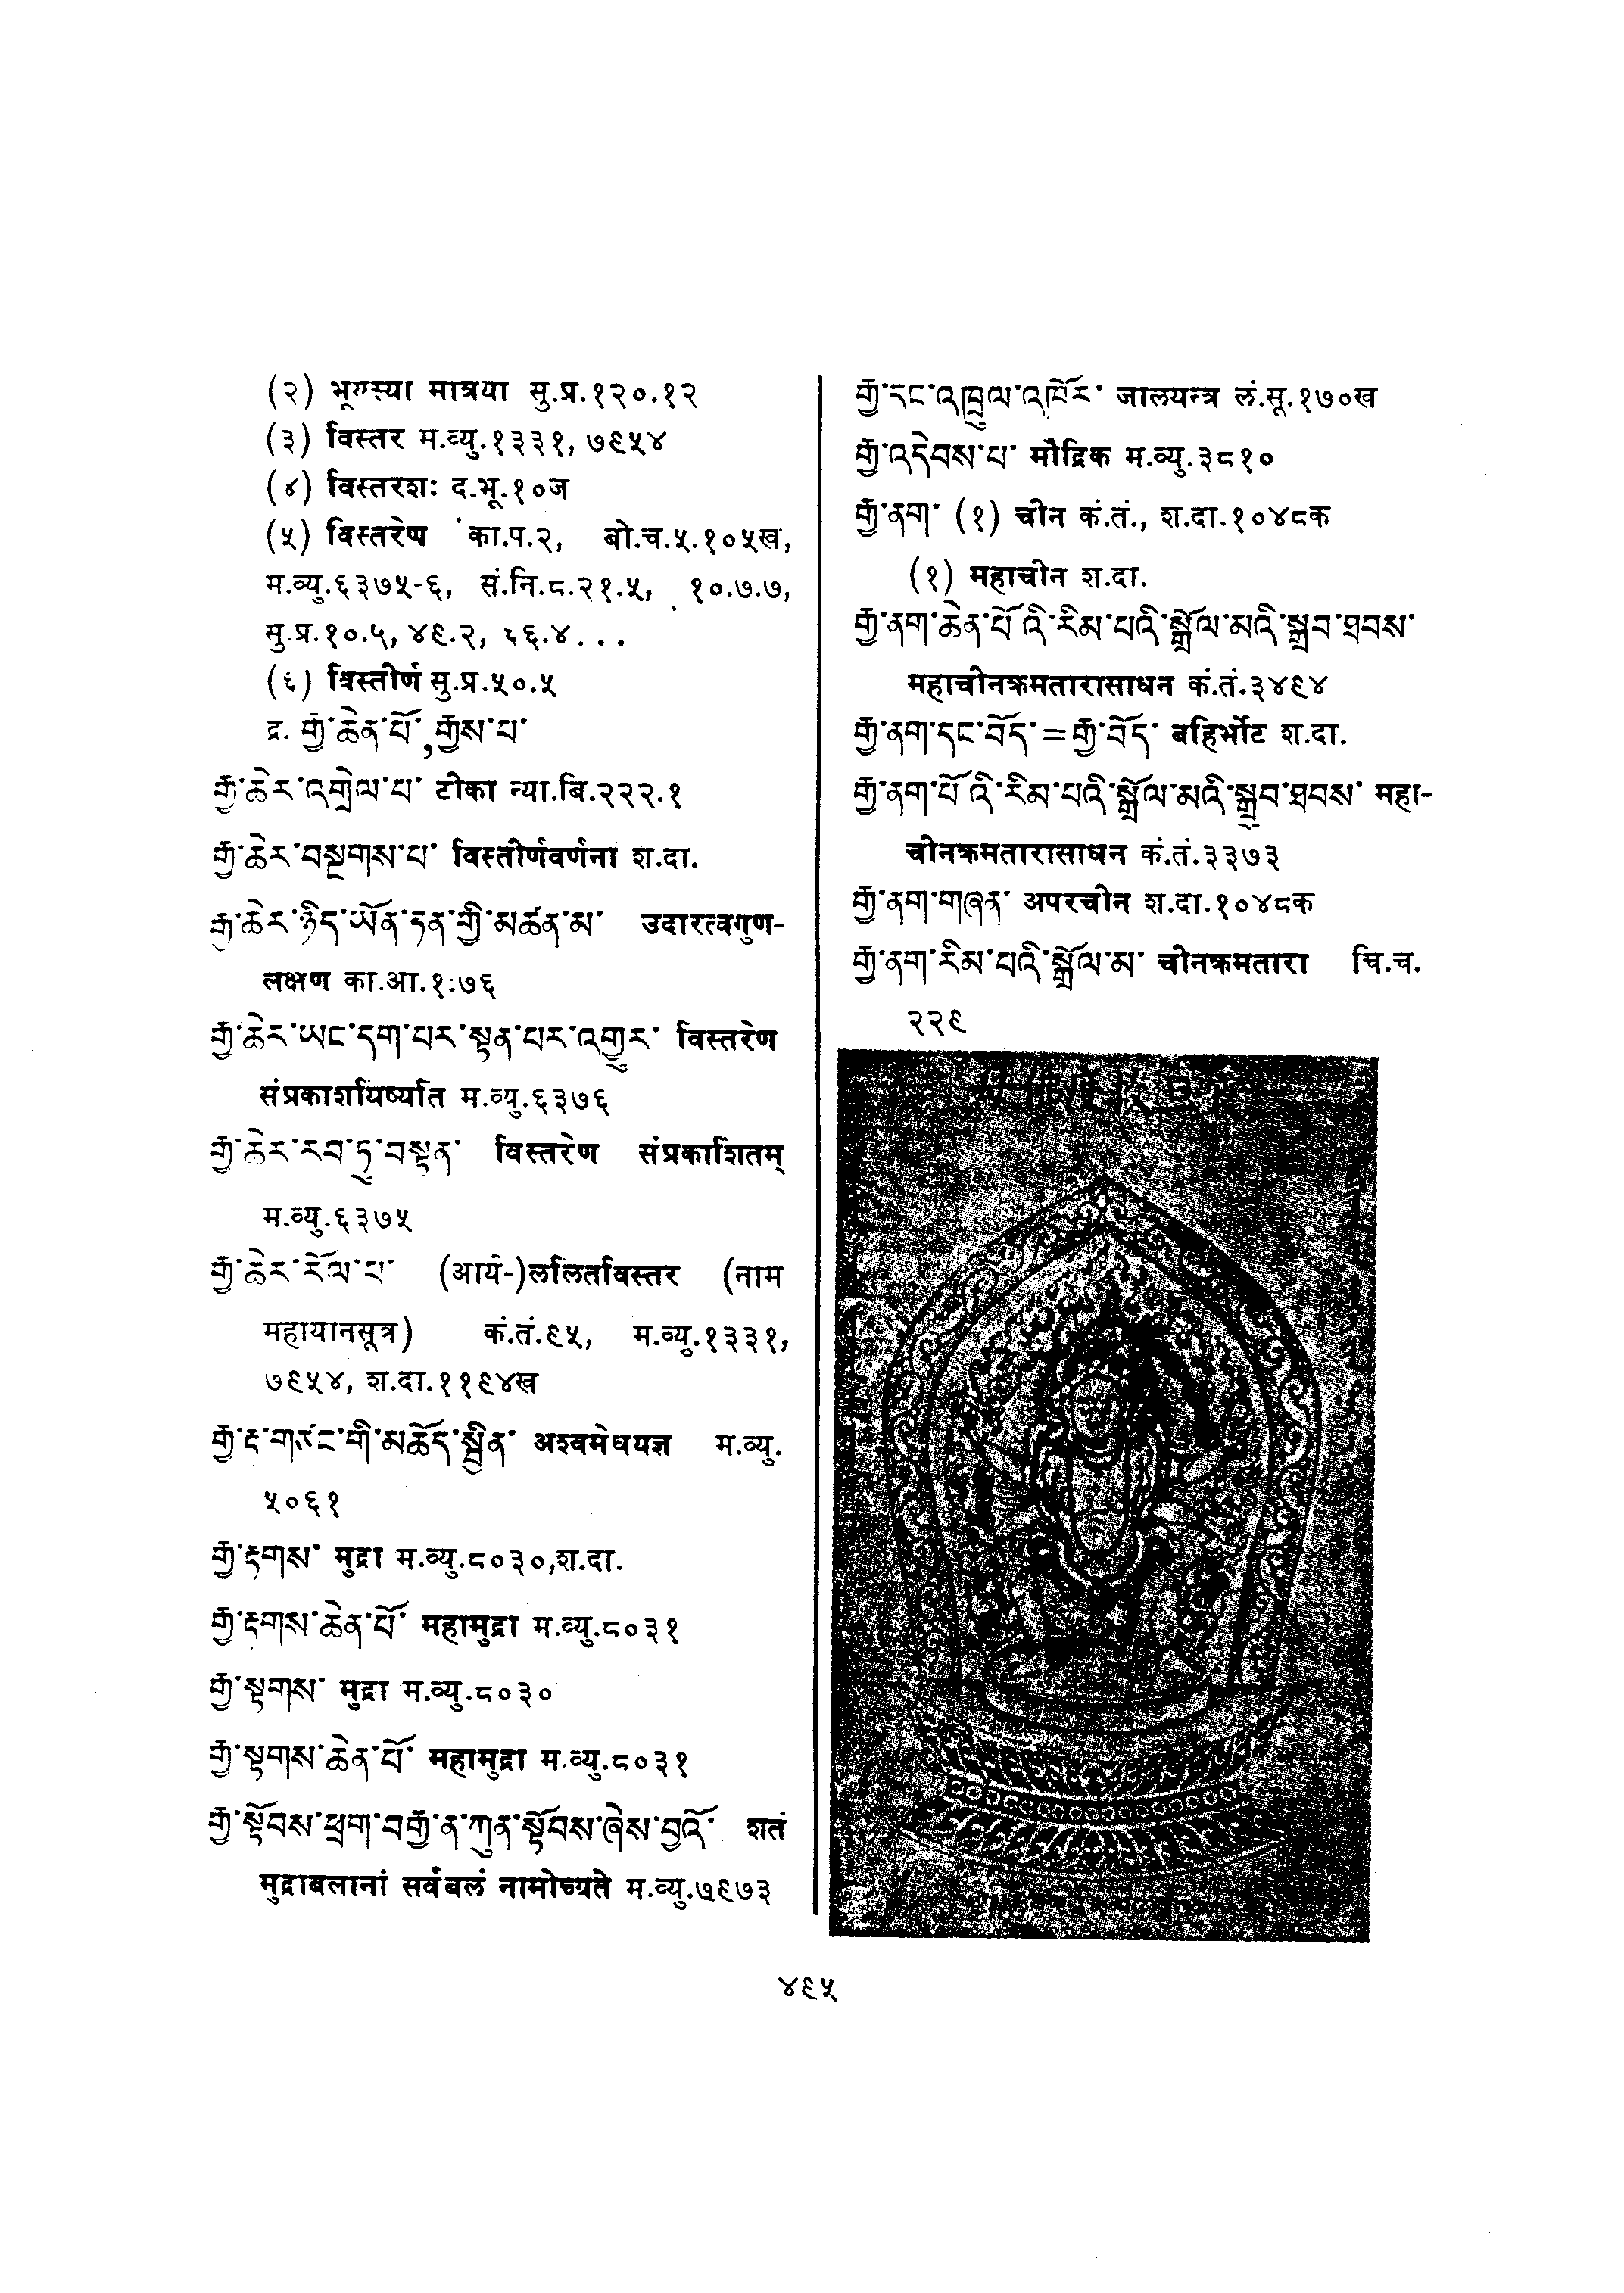 (२) भूयस्या मात्रया सु.प्र.१२०.१२
(३) विस्तर म.व्यु.१३३१, ७९५४
(४) विस्तरशः द.भू.१०ज
(५) विस्तरेण का.प.२, बो.च.५.१०५ख,
म.व्यु.६३७५-६, सं.नि.८.२१.५, १०.७.७,
सु.प्र.१०.५, ४९.२, ६६.४...
(६) विस्तीर्ण सु.प्र.५०.५
द्र. རྒྱ་ཆེན་པོ་,རྒྱས་པ་
རྒྱ་ཆེར་འགྲེལ་པ་ टीका न्या.बि.२२२.१
རྒྱ་ཆེར་བསྔགས་པ་ विस्तीर्णवर्णना श.दा.
རྒྱ་ཆེར་ཉིད་ཡོན་ཏན་གྱི་མཚན་མ་ उदारत्वगुण-
लक्षण का.आ.१:७६
རྒྱ་ཆེར་ཡང་དག་པར་སྟན་པར་འགྱུར་ विस्तरेण
संप्रकाशयिष्यति म.व्यु.६३७६
རྒྱ་ཆེར་རབ་ཏུ་བསྟན་ विस्तरेण संप्रकाशितम्
म.व्यु.६३७५
རྒྱ་ཆེར་རོལ་པ་ (आर्य-)ललितविस्तर (नाम
महायानसूत्र) कं.तं.९५, म.व्यु.१३३१,
७९५४, श.दा.११९४ख
རྒྱ་རྟ་གཙང་གི་མཆོད་སྦྱིན་ अश्वमेधयज्ञ म.व्यु.
५०६१
རྒྱ་རྟགས་ मुद्रा म.व्यु.८०३०,श.दा.
རྒྱ་རྟགས་ཆེན་པོ་ महामुद्रा म.व्यु.८०३१
རྒྱ་སྟགས་ मुद्रा म.व्यु.८०३०
རྒྱ་སྟགས་ཆེན་པོ་ महामुद्रा म.व्यु.८०३१
རྒྱ་སྟོབས་ཕྲག་བརྒྱ་ན་ཀུན་སྟོབས་ཞེས་བྱའོ་ शतं
मुद्राबलानां सर्वबलं नामोच्यते म.व्यु.७९७३
རྒྱ་དང་འཁྲུལ་འཁོར་ जालयन्त्र लं.सू.१७०ख
རྒྱ་འདེབས་པ་ मौद्रिक म.व्यु.३८१०
རྒྱ་ནག་ (१) चीन कं.तं., श.दा.१०४८क
(१) महाचीन श.दा.
རྒྱ་ནག་ཆེན་པོ་འི་རིམ་པའི་སྒྲོལ་མའི་སྒྲུབ་ཐབས་
महाचीनक्रमतारासाधन कं.तं.३४९४
རྒྱ་ནག་དང་བོད་=རྒྱ་བོད་ बहिर्भोट श.दा.
རྒྱ་ནག་པོ་འི་རིམ་པའི་སྒྲོལ་མའི་སྒྲུབ་ཐབས་ महा-
चीनक्रमतारासाधन कं.तं.३३७३
རྒྱ་ནག་གཞན་ अपरचीन श.दा.१०४८क
རྒྱ་ནག་རིམ་པའི་སྒྲོལ་མ་ चीनक्रमतारा चि.च.
२२९
४९५